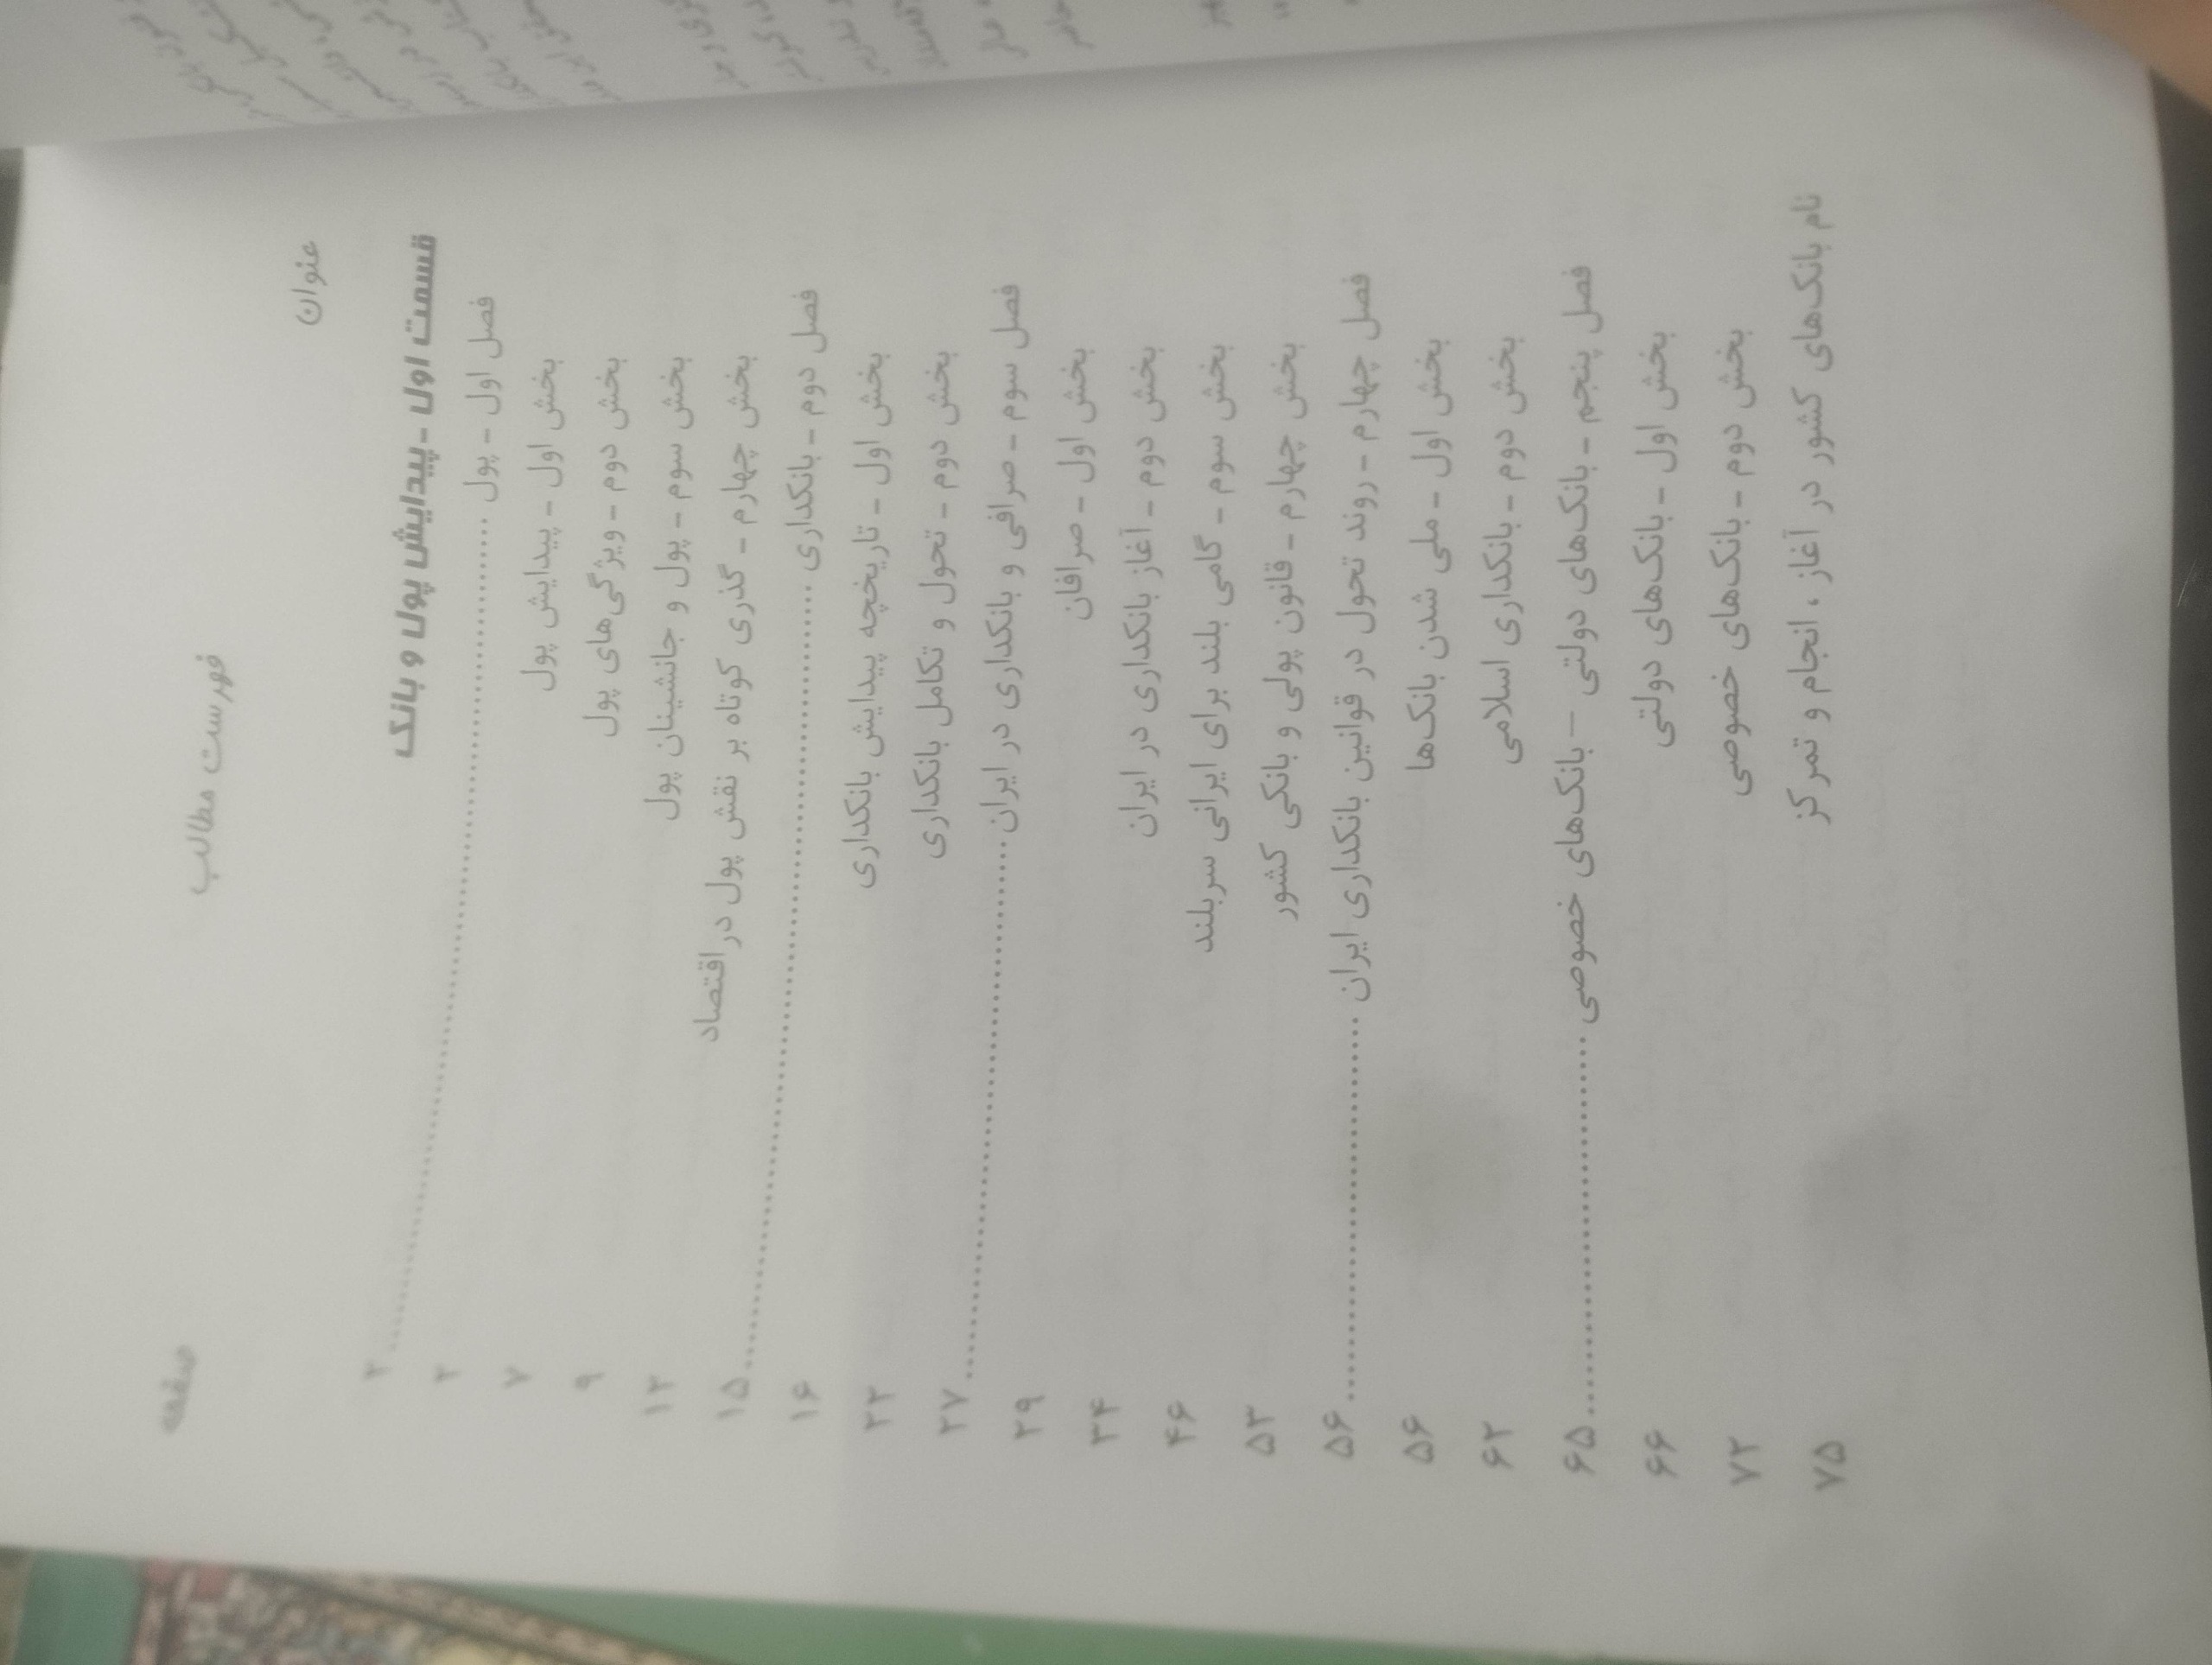 فهرست مطالب
عنوان صفحه
قسمت اول - پیدایش پول و بانک
فصل اول - پول .......... ۲
بخش اول - پیدایش پول ۲
بخش دوم - ویژگی‌های پول ۷
بخش سوم - پول و جانشینان پول ۹
بخش چهارم - گذری کوتاه بر نقش پول در اقتصاد ۱۲
فصل دوم - بانکداری .......... ۱۵
بخش اول - تاریخچه پیدایش بانکداری ۱۶
بخش دوم - تحول و تکامل بانکداری ۲۲
فصل سوم - صرافی و بانکداری در ایران .......... ۲۷
بخش اول - صرافان ۲۹
بخش دوم - آغاز بانکداری در ایران ۳۴
بخش سوم - گامی بلند برای ایرانی سربلند ۴۶
بخش چهارم - قانون پولی و بانکی کشور ۵۳
فصل چهارم - روند تحول در قوانین بانکداری ایران .......... ۵۶
بخش اول - ملی شدن بانک‌ها ۵۶
بخش دوم - بانکداری اسلامی ۶۲
فصل پنجم - بانک‌های دولتی – بانک‌های خصوصی .......... ۶۵
بخش اول - بانک‌های دولتی ۶۶
بخش دوم - بانک‌های خصوصی ۷۲
نام بانک‌های کشور در آغاز ، انجام و تمرکز ۷۵